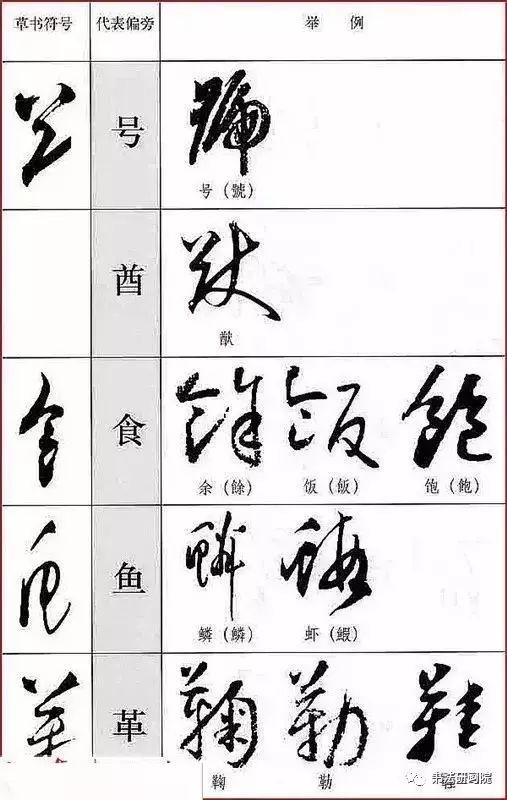 草书符号 代表偏旁 举例
号
号（號）
酋
猷
食
余（餘） 饭（飯） 饱（飽）
鱼
鳞（鱗） 虾（鰕）
革
鞠 勒 鞋
书法研习院